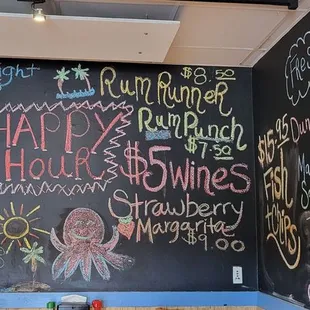 Rum Runner $8.50
Rum Punch
$7.50
HAPPY
HOUR
$5 Wines
Strawberry
Margarita
$9.00
$15.95
Fish
Chips